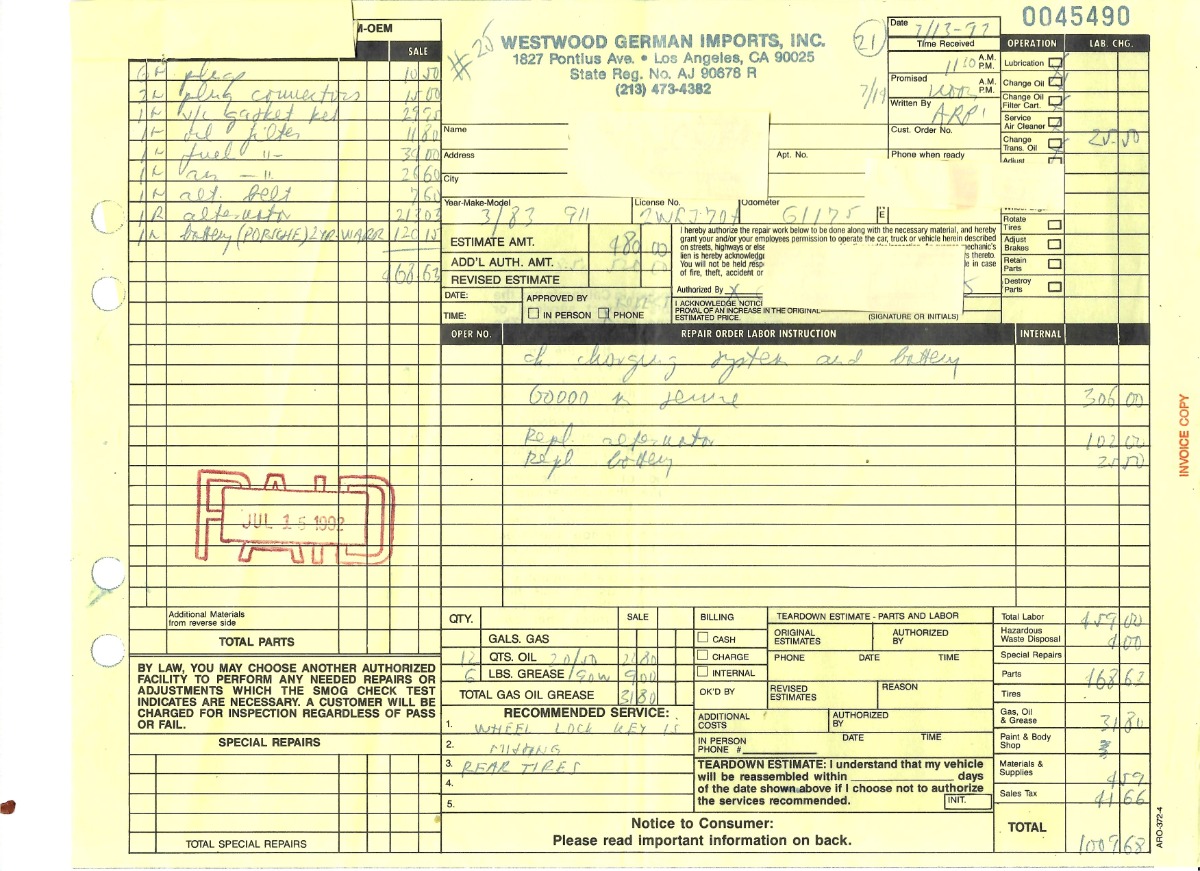 M-OEM
SALE
6 N plugs 10 50
plug connectors 15 00
1 N v/c gasket ket 29 75
1 N oil filter 11 80
1 N fuel -"- 39 00
1 N air -"- 26 60
1 N alt. belt 7 60
1 R alternator 213 03
1 N battery (PORSCHE) 2YR-WARR 120 15
468.63
Additional Materials
from reverse side
TOTAL PARTS
BY LAW, YOU MAY CHOOSE ANOTHER AUTHORIZED
FACILITY TO PERFORM ANY NEEDED REPAIRS OR
ADJUSTMENTS WHICH THE SMOG CHECK TEST
INDICATES ARE NECESSARY. A CUSTOMER WILL BE
CHARGED FOR INSPECTION REGARDLESS OF PASS
OR FAIL.
SPECIAL REPAIRS
TOTAL SPECIAL REPAIRS
PAID
JUL 15 1992
#25
WESTWOOD GERMAN IMPORTS, INC.
1827 Pontius Ave. • Los Angeles, CA 90025
State Reg. No. AJ 90678 R
(213) 473-4382
21
Date 7/13-92
Time Received
A.M.
P.M.
Promised 7/14 noon
A.M.
P.M.
Written By
Cust. Order No.
Phone when ready
Name
Address
Apt. No.
City
Year-Make-Model 3/83 911
License No.
Odometer 61175
E
0045490
OPERATION LAB. CHG.
Lubrication
Change Oil
Change Oil
Filter Cart.
Service
Air Cleaner
Change
Trans. Oil 25.50
Adjust
Rotate
Tires
Adjust
Brakes
Retain
Parts
Destroy
Parts
ESTIMATE AMT. 980 00
ADD'L AUTH. AMT.
REVISED ESTIMATE
DATE:
TIME:
APPROVED BY
IN PERSON PHONE
I hereby authorize the repair work below to be done along with the necessary material, and hereby
grant your and/or your employees permission to operate the car, truck or vehicle herein described
on streets, highways or else
lien is hereby acknowledg mechanic's
You will not be held resp
of fire, theft, accident or
's thereto.
le in case
Authorized By X
I ACKNOWLEDGE NOTICE
PROVAL OF AN INCREASE IN THE ORIGINAL
ESTIMATED PRICE.
(SIGNATURE OR INITIALS)
OPER NO. REPAIR ORDER LABOR INSTRUCTION INTERNAL
ch. charging system and battery
60000 m service 306 00
Repl. alternator 102 00
Repl battery 25 50
INVOICE COPY
QTY. SALE
GALS. GAS
12 QTS. OIL 20/50 22 80
6 LBS. GREASE/90W 9 00
TOTAL GAS OIL GREASE 31 80
RECOMMENDED SERVICE:
1. WHEEL LOCK KEY IS
2. MISSING
3. REAR TIRES
4.
5.
BILLING
CASH
CHARGE
INTERNAL
OK'D BY
TEARDOWN ESTIMATE - PARTS AND LABOR
ORIGINAL
ESTIMATES
AUTHORIZED
BY
PHONE DATE TIME
REVISED
ESTIMATES
REASON
ADDITIONAL
COSTS
AUTHORIZED
BY
IN PERSON
PHONE #
DATE TIME
TEARDOWN ESTIMATE: I understand that my vehicle
will be reassembled within days
of the date shown above if I choose not to authorize
the services recommended.
INIT.
Notice to Consumer:
Please read important information on back.
Total Labor 459 00
Hazardous
Waste Disposal 4 00
Special Repairs
Parts 468 63
Tires
Gas, Oil
& Grease 31 80
Paint & Body
Shop
Materials &
Supplies 4 59
Sales Tax 41 66
TOTAL 1009 68
ARO-372-4